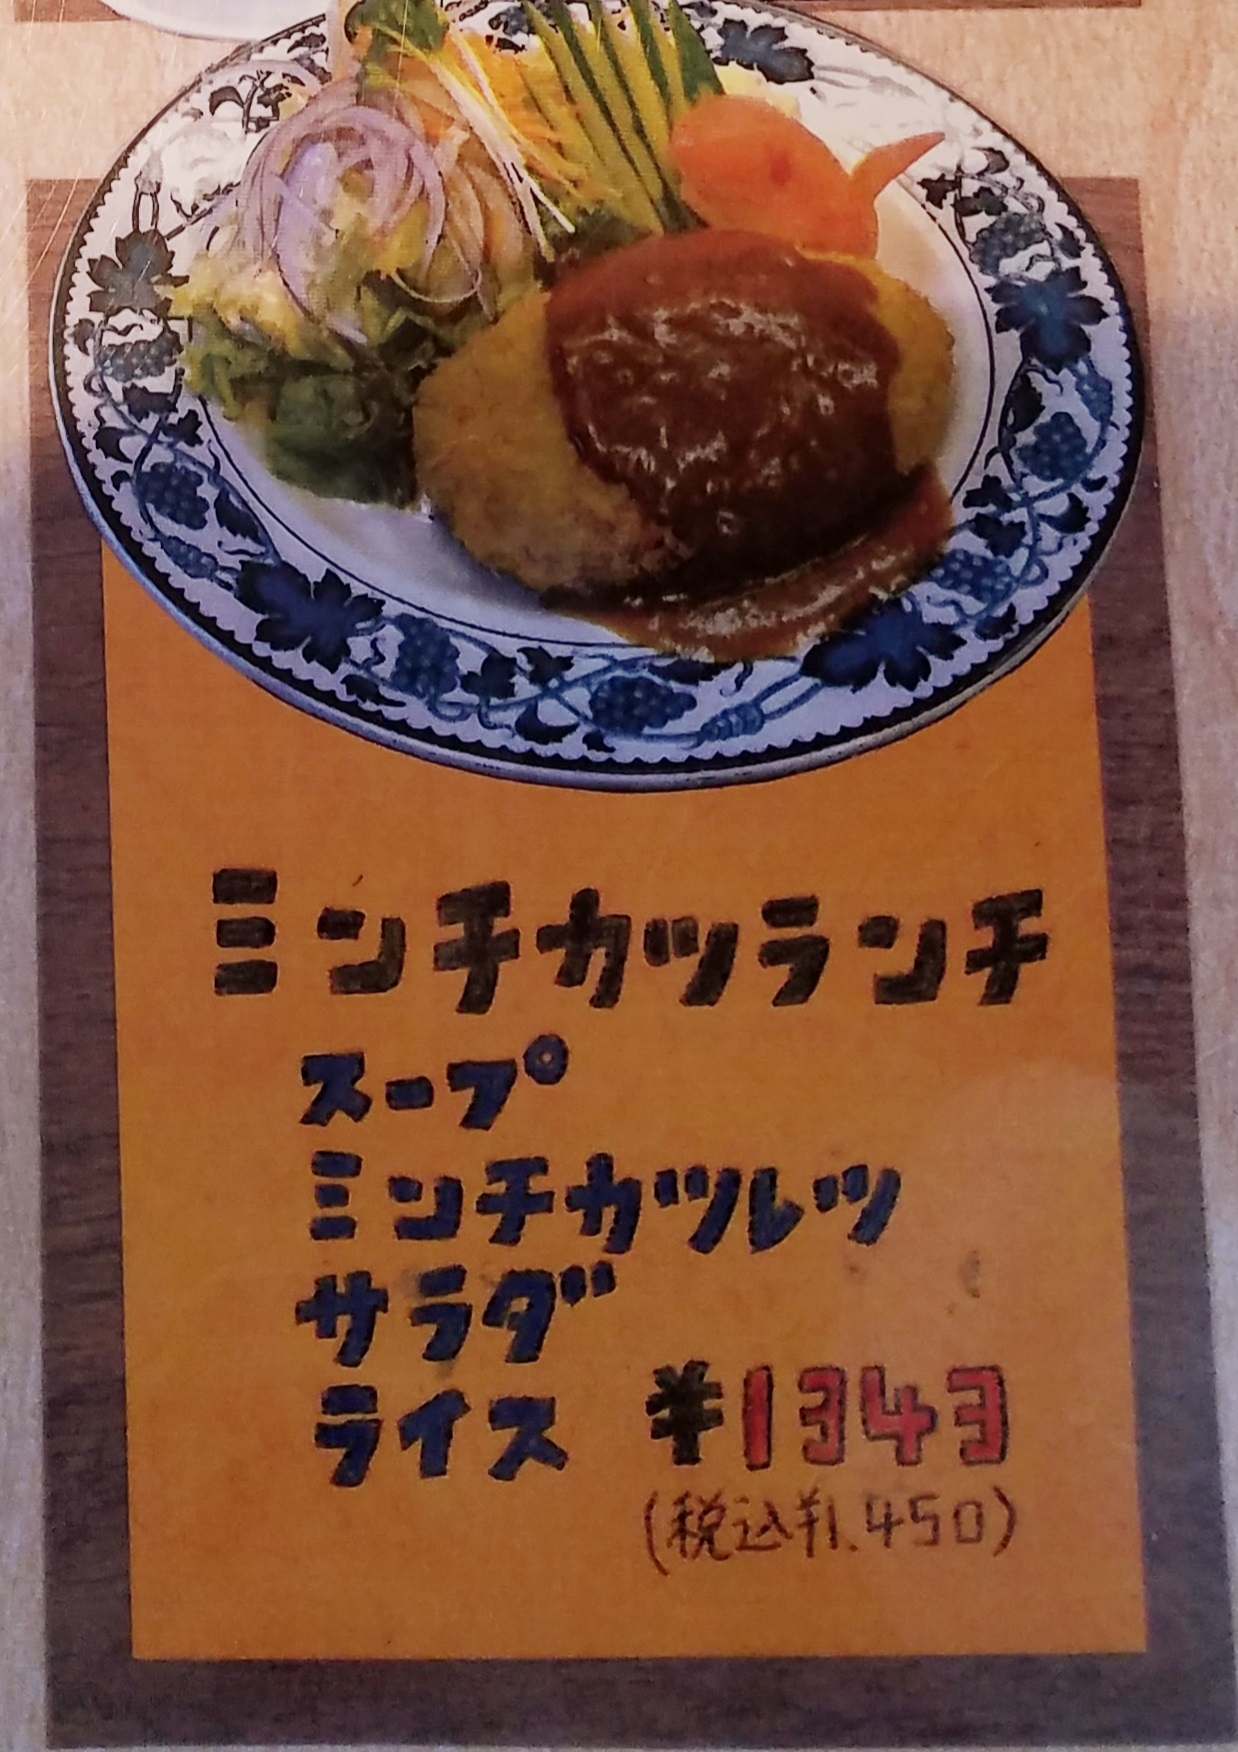 ミンチカツランチ
スープ
ミンチカツレツ
サラダ
ライス ¥1343
(税込¥1.450)